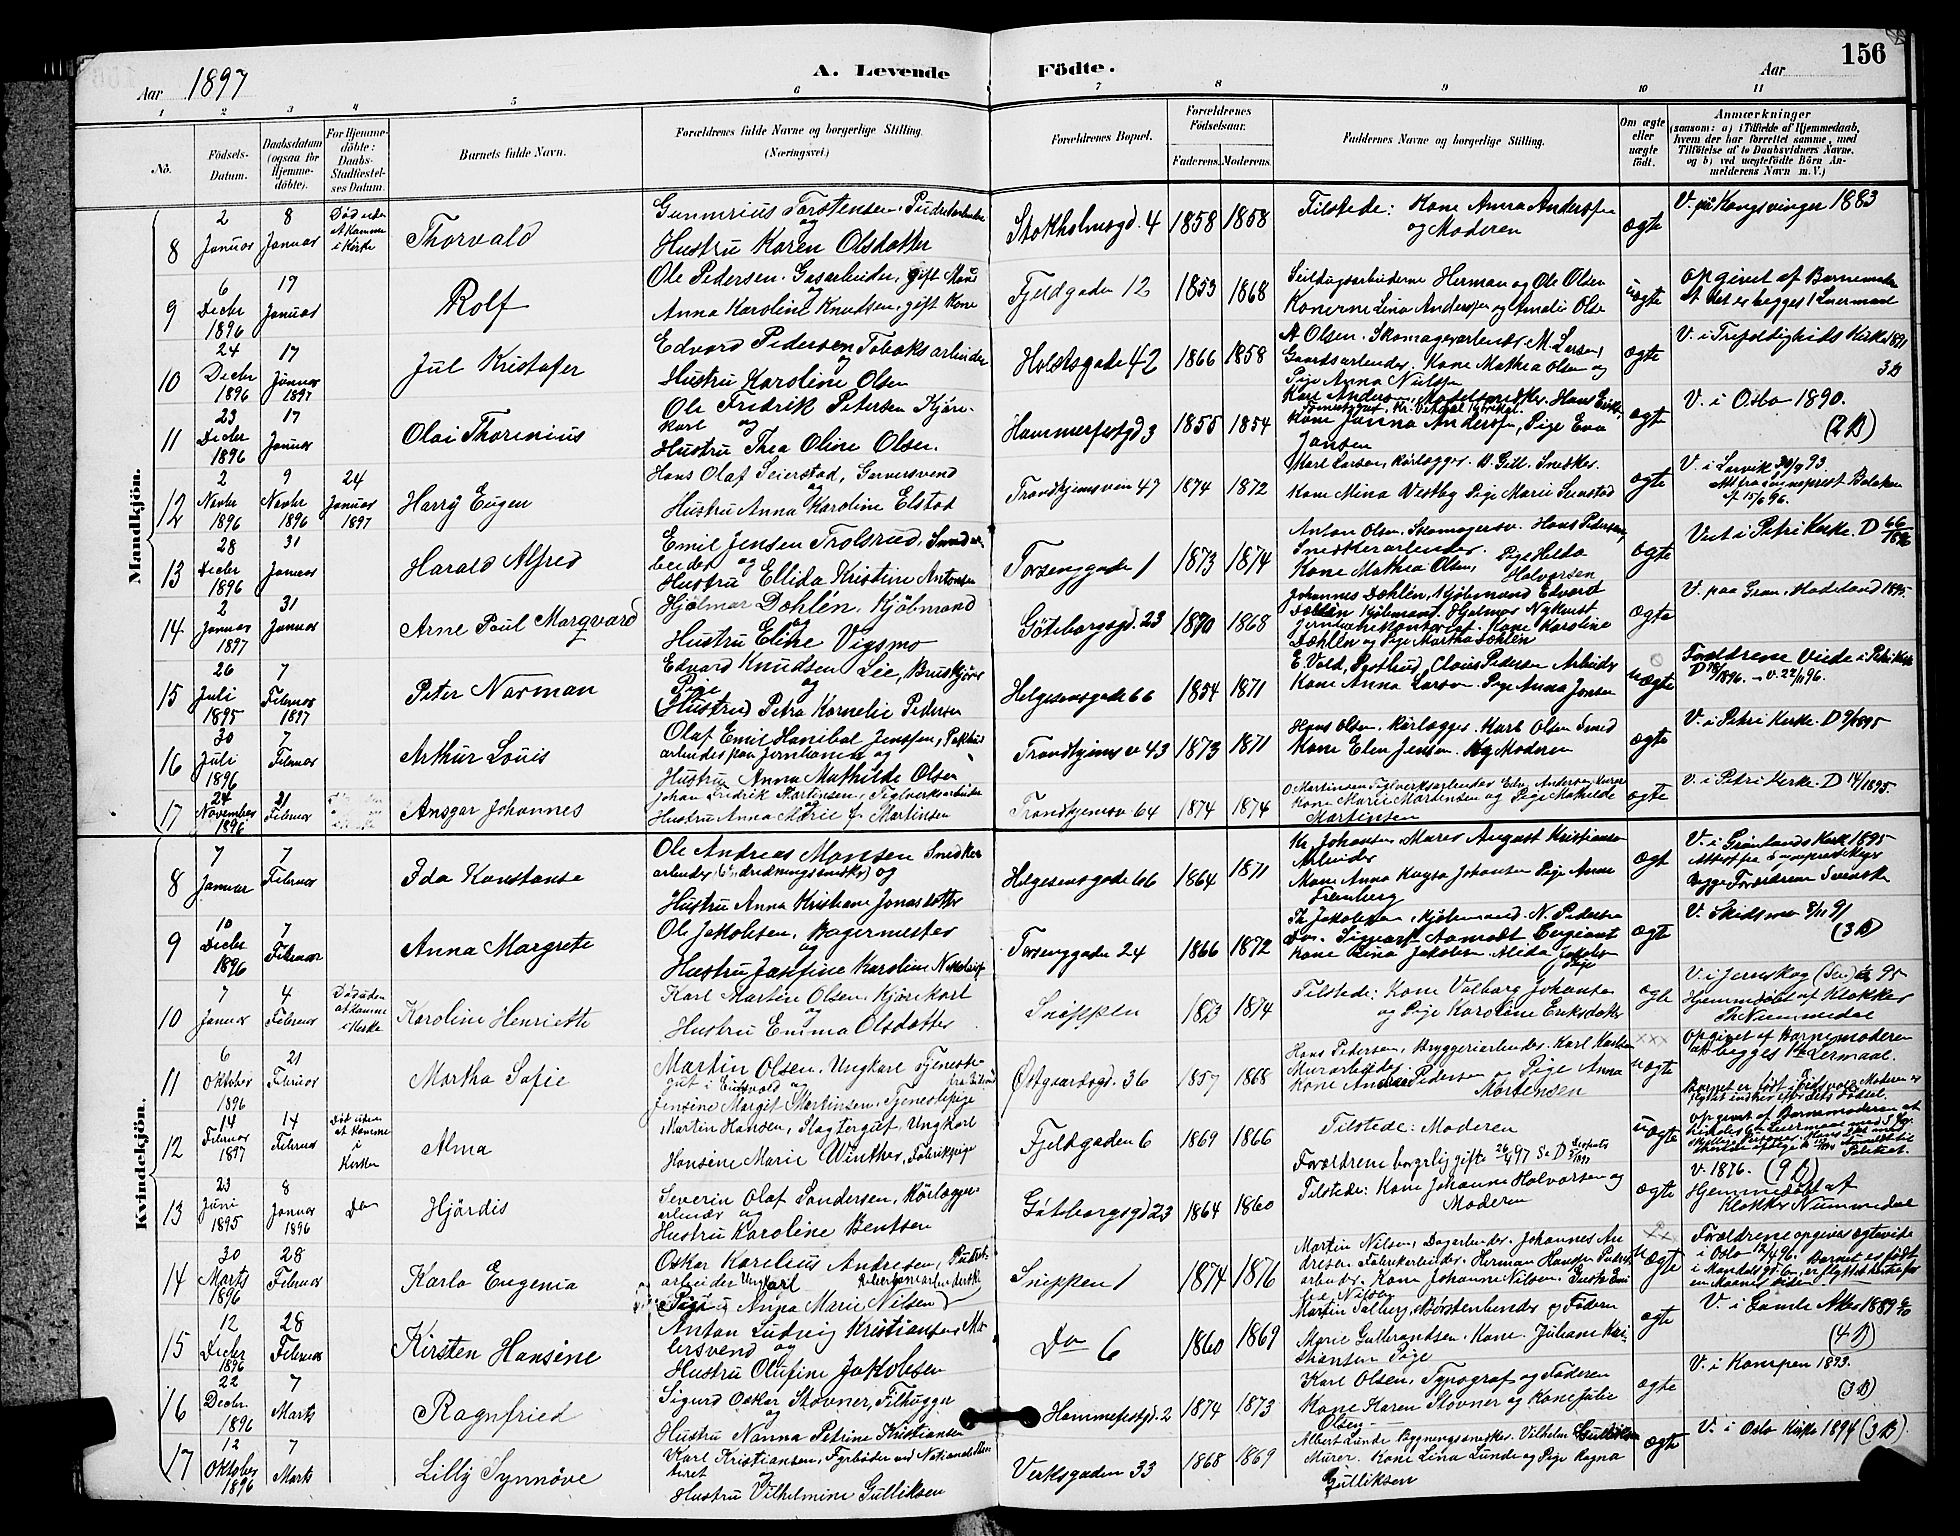 156
A. Levende Födte.
Aar 1897
Aar
1 2 3 4 5 6 7 8 9 10 11
No.
Födsels-Datum.
Daabsdatum (ogsaa for Hjemme-döbte).
For Hjemme-döbte: Daabs-Stadfæstel-ses Datum.
Barnets fulde Navn.
Forældrenes fulde Navne og borgerlige Stilling. (Næringsvei.)
Forældrenes Bopæl.
Forældrenes Födselsaar.
Faderens. Moderens.
Faddernes Navne og borgerlige Stilling.
Om ægte eller uægte födt.
Anmærkninger
(saasom: a) i Tilfælde af Hjemmedaab,
hvem der har forrettet samme, med
Tilföielse af to Daabsvidners Navne,
og b) ved uægtefödte Börn An-
melderens Navn m. V.)
Mandkjön.
8
2 Januar
8 Januar
Död uden At komme i Kirke
Thorvald
Gunnerius Torstensen, Pudsarbeider
og
Hustru Karen Olsdatter
Stokholmsgd. 4
1858 1858
Tilstede: Kone Anna Andersen
og Moderen
ægte
V. på Kongsvinger 1883
9
6 Decbr 1896
17 Januar
Rolf
Ole Pedersen, Gasarbeider, gift Mand
og
Anna Karoline Knudsen, gift Kone
Fjeldgaden 12
1853 1868
Seildugsarbeiderne Herman og Ole Olsen
Konerne Lina Andersen og Amalie Olsen
uægte
Opgivet af Barnemoderen
At det er begges 1 Leiermaal
10
24 Decbr 1896
17 Januar 1897
Jul Kristofer
Edvard Pedersen Tobaksarbeider
og
Hustru Karoline Olsen
Holstsgade 42
1866 1858
A Olsen. Skomagerarbeider, M. Larsen,
Gaardsarbeider. Kone Mathea Olsen og
Pige Anna Nielsen
ægte
V. i Trefoldigheds Kirke 1891
3 B
11
23 Decbr 1896
17 Januar
Olai Thorenius
Ole Fredrik Petersen Kjöre-
karl og
Hustru Thea Oline Olsen.
Hammerfestgd 3
1855 1854
Karl Andersen, Modelsnedker. Hans
Kone Janna Andersen, Pige Eva
Jansen
ægte
V. i Oslo 1890.
(2 B)
12
2 Novbr 1896
9 Novbr 1896
24 Januar 1897
Harry Eugen
Hans Olaf Seierstad, Garversvend
og
Hustru Anna Karoline Elstad
Trondhjemsvein 47
1874 1872
Karl Larsen, Rörlægger. B. Gill. Snedker.
Kone Mina Vestby Pige Marie Sunstad
ægte
V. i Larvik 30/9 93.
13
28 Decbr 1896
31 Januar
Harald Alfred
Emil Jensen Trolsrud, Smedar-
beider og
Hustru Ellida Kristine Antonsen
Torsenggade 1
1873 1874
Anton Olsen, Skomagersv. Hans Pedersen,
Snedkerarbeider. Pige Hilda
Kone Mathea Olsen, Halvorsen
ægte
Viet i Petri Kirke. D 66/1896
14
2 Januar 1897
31 Januar
Arne Paul Marqvard
Hjalmar Dæhlén, Kjöbmand
og
Hustru Eline Vigsmo
Göteborgsgd. 23
1870 1868
Johannes Dæhlén, Kjöbmand Edvard
Dæhlén Kjöbmand. Hjalmar Nykvist
Kone Karoline
Dæhlén og Pige Martha Dæhlén
ægte
V. paa Gran, Hadeland 1895
15
26 Juli 1895
7 Februar 1897
Peter Norman
Edvard Knudsen Lie, Bruskjörer
Pige og
(Hustru) Petra Kornelie Pedersen
Helgesensgade 66
1854 1871
E. Vold, Claus Pedersen Arbeider
Kone Anna Larsen. Pige Anna Jonsen
uægte
Forældrene Viede i Petri Kirke
D 78/1896. – v. 22/11 96.
16
30 Juli 1896
7 Februar
Arthur Louis
Olaf Emil Hanibal Jensen, Pakhus
arbeider paa Jernbanen og
Hustru Anna Mathilde Olsen
Trondhjemsv 43
1873 1871
Hans Olsen, Rörlægger. Karl Olsen Smed
Kone Elen Jensen. og Moderen
ægte
V. i Petri Kirke. D 9/1895
17
24 November 1896
21 Februar
Ansgar Johannes
Johan Fredrik Martinsen, Teglverksarbeider
og
Hustru Anna Marie f. Martinsen
Trondhjemsv 64
1874 1874
O Martinsen Teglverksarbeider Elev Andersen Murer
Kone Marie Martinsen og Pige Mathilde
Martinsen
ægte
V. i Petri Kirke. D 14/1895
Kvindekjön.
8
7 Januar
7 Februar
Ida Konstanse
Ole Andreas Monsen Snedker
arbeider (Indredningssnedker) og
Hustru Anna Kristiane Jonasdatter
Helgesensgade 66
1864 1871
Kr. Johansen, Murer August Kristiansen
Arbeider
Kone Anna Kaysa Johansen Pige Anne
ægt
V. i Grönlands Kirk 1895
Begge Forældrene Svenske
9
10 Decbr 1896
7 Februar
Anna Margrete
Ole Jakobsen, Bagermester
og
Hustru Josefine Karoline
Torsenggaden 24
1866 1872
Th. Jakobsen, Kjöbmand. N. Pedersen
Do. Sigvart Aamodt Sergeant
Kone Lina Jakobsen. Alida Jakobsen
Pige
ægte
V. Skidsmo 8/11 91
(3 B)
10
7 Januar
4 Februar
Död uden at komme i Kirke
Karoline Henriette
Karl Martin Olsen, Kjörekarl
og
Hustru Emma Olsdatter
Snippen
1873 1874
Tilstede: Kone Valborg Johansen
og Pige Karoline Eriksdatter
ægte
V. i Jernskog 95
Hjemmedöbt af Klokker
Th Nummedal
11
6 Oktober 1896
21 Februar
Martha Sofie
Martin Olsen, Ungkarl Tjeneste-
gut i Eidsvold og
Jensine Margit Martinsen, Tjenestepige
Østgaardsgd. 36
1857 1868
Hans Pedersen, Bryggeriarbeider. Karl
Murarbeider. Pige Anna
Kone Pedersen Mortensen
xxx
uægte
Opgivet af Barnemoderen
at begges 1ste Lermaal.
Barnet er födt i Eidsvold Moderen er
12
14 Februar 1897
14 Februar
Död uden at komme i Kirken
Alma
Martin Hansen, Slagtergut, Ungkarl
Hansine Marie Winther, Fabrikpige
Fjeldgaden 6
1869 1866
Tilstede: Moderen
Forældrene borgerlig gifte 26/4 97
uægte
Opgivet af Barnemoderen at
13
23 Juni 1895
8 Januar 1896
Do
Hjördis
Severin Olaf Sandersen, Rörlægger-
arbeider og
Hustru Karoline Bentsen
Götborgsgd 23
1864 1860
Tilstede: Kone Johanne Halvorsen og
Moderen
ægte
V. 1876. (9 B)
Hjemmedöbt af
Klokker Nummedal
14
30 Marts 1896
28 Februar
Karla Eugenia
Oskar Karelius Andresen, Puds-
arbeider Ungkarl
Pige Anna Marie Nilsen
Snippen 1
1874 1876
Martin Nilsen, Dagarbeider. Johannes An-
dresen Fabrikarbeider. Herman Hansen Puds
arbeider. Kone Johanne Nilsen.
xx
uægte
Forældrene opgives ægteviede
i Oslo 12/4 96. Barnet er födt
i Mandalsgd.
15
12 Decbr 1896
28 Februar
Kirsten Hansine
Anton Ludvig Kristiansen, Ma-
lersvend og
Hustru Olufine Jakobsen
Do 6
1860 1869
Martin Salberg, Börstenbinder og Faderen
Marie Gulbrandsen. Kone. Juliane Kri-
stiansen Pige
ægte
V. i Gamle Aker 1889
(4 B)
16
22 Decbr 1896
7 Marts
Ragnfried
Sigurd Oskar Stovner, Filhugger
og
Hustru Nanna Petrine Kristiansen
Hammerfestgd. 2
1874 1873
Karl Olsen, Typograf og Faderen
Kone Karen Stovner og Kone Julie
Olsen
ægte
V. i Kampen 1893.
(3 B)
17
12 Oktober 1896
7 Marts
Lilly Synnöve
Karl Kristiansen, Fyrböder ved Nationalthea-
teret og
Hustru Vilhelmine Gulliksen
Verksgaden 33
1868 1869
Albert Lunde Bygningssnedker. Vilhelm Gulliksen
Murer. Kone Lina Lunde og Pige Ragna
Gulliksen
ægte
V. i Oslo Kirke 1894 (3 B).